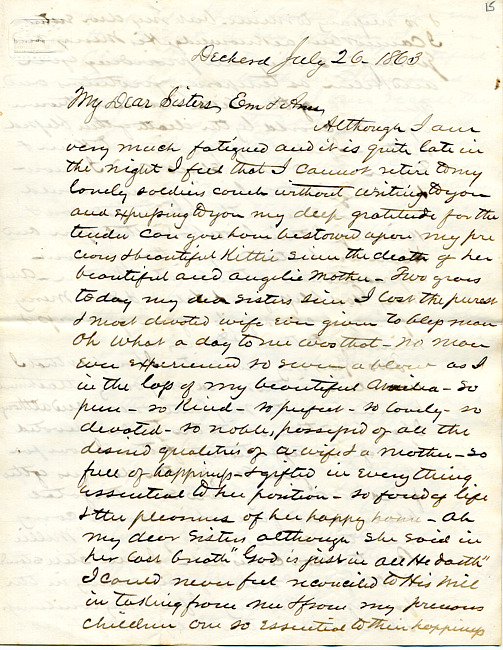 15
Decherd July 26 - 1863
My Dear Sisters, Em & Ann,
Although I am
very much fatigued and it is quite late in
the night I feel that I cannot retire to my
lonely soldiers couch without writing to you
and expressing to you my deep gratitude for the
tender care you have bestowed upon my pre
cious & beautiful Kittie since the death of her
beautiful and angelic Mother - Two years
today my dear Sisters since I lost the purest
& most devoted wife ever given to bless man
Oh what a day to me was that - No man
ever experienced so severe a blow as I
in the loss of my beautiful Amelia - So
pure - so Kind - so perfect - so lovely - so
devoted - so noble, possessed of all the
desired qualities of a wife & a Mother - So
full of happiness - & gifted in everything
essential to her position - so fond of life
& the pleasures of her happy home - Ah
my dear Sisters although she said in
her last breath "God is just in all He doeth"
I could never feel reconciled to His will
in taking from me & from my precious
children one so essential to their happiness